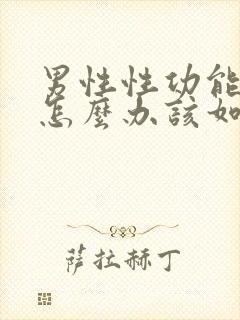 男性性功能
怎麼办該如
萨拉赫丁